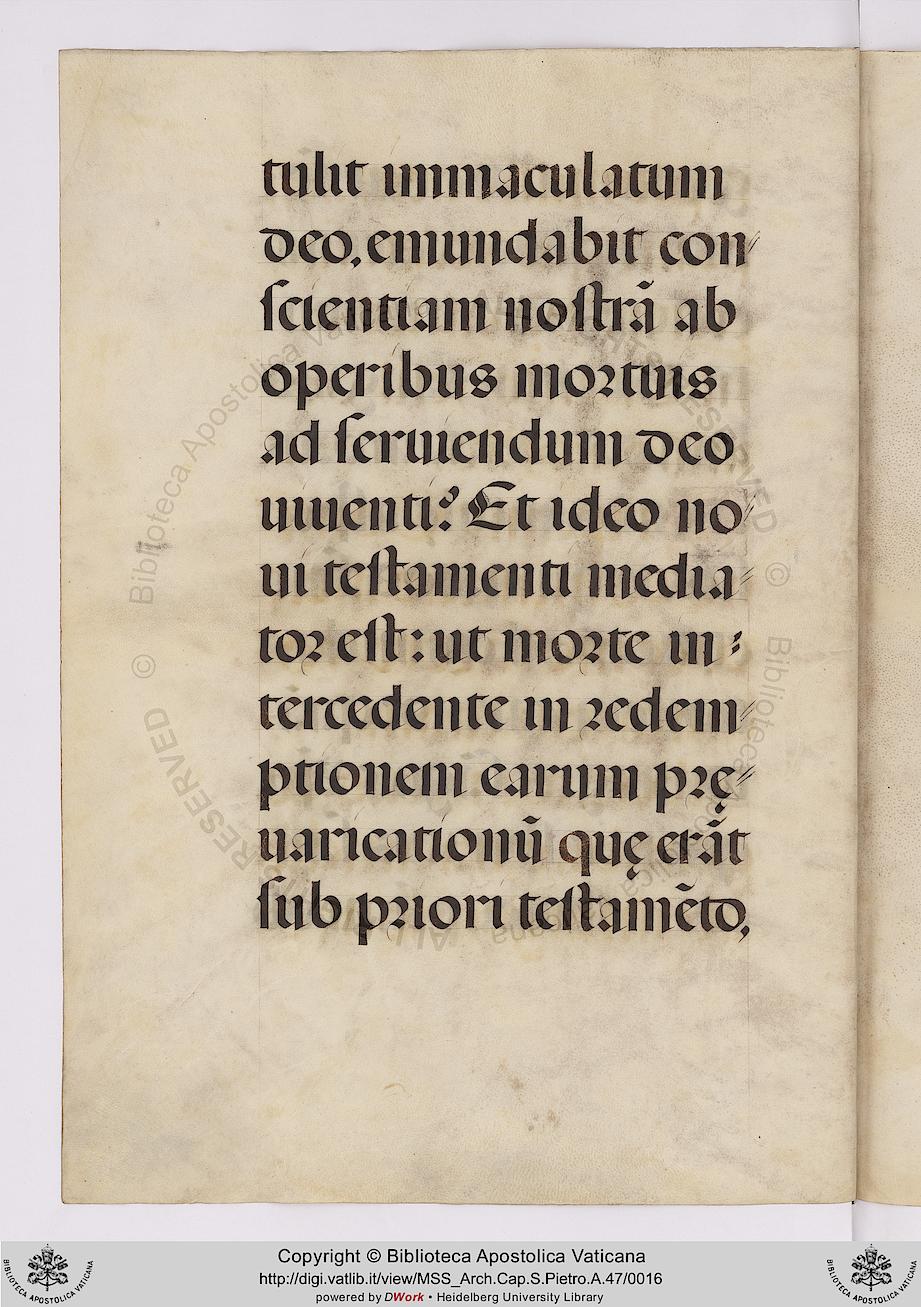 tulit immaculatum
deo, emundabit con⸗
ſcientiam noſtrã ab
operibus moꝛtuis
ad ſeruiendum deo
uiuenti? Et ideo no⸗
ui teſtamenti media⸗
toꝛ eſt: ut moꝛte in⸗
tercedente in ꝛedem⸗
ptionem earum pꝛę⸗
uaricationũ quę erãt
ſub pꝛiori teſtamẽto,
© Biblioteca Apostolica Vaticana ALL RIGHTS RESERVED
© Biblioteca Apostolica Vaticana ALL RIGHTS RESERVED
BIBLIOTECA APOSTOLICA VATICANA
Copyright © Biblioteca Apostolica Vaticana
http://digi.vatlib.it/view/MSS_Arch.Cap.S.Pietro.A.47/0016
powered by DWork • Heidelberg University Library
BIBLIOTECA APOSTOLICA VATICANA